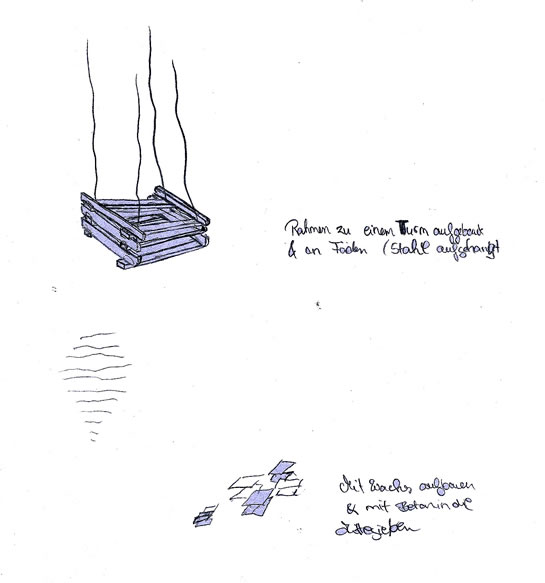 Rahmen zu einem Turm aufgebaut
& an Fäden (Stahl aufgehängt
Mit Wachs aufbauen
& mit Beton in die